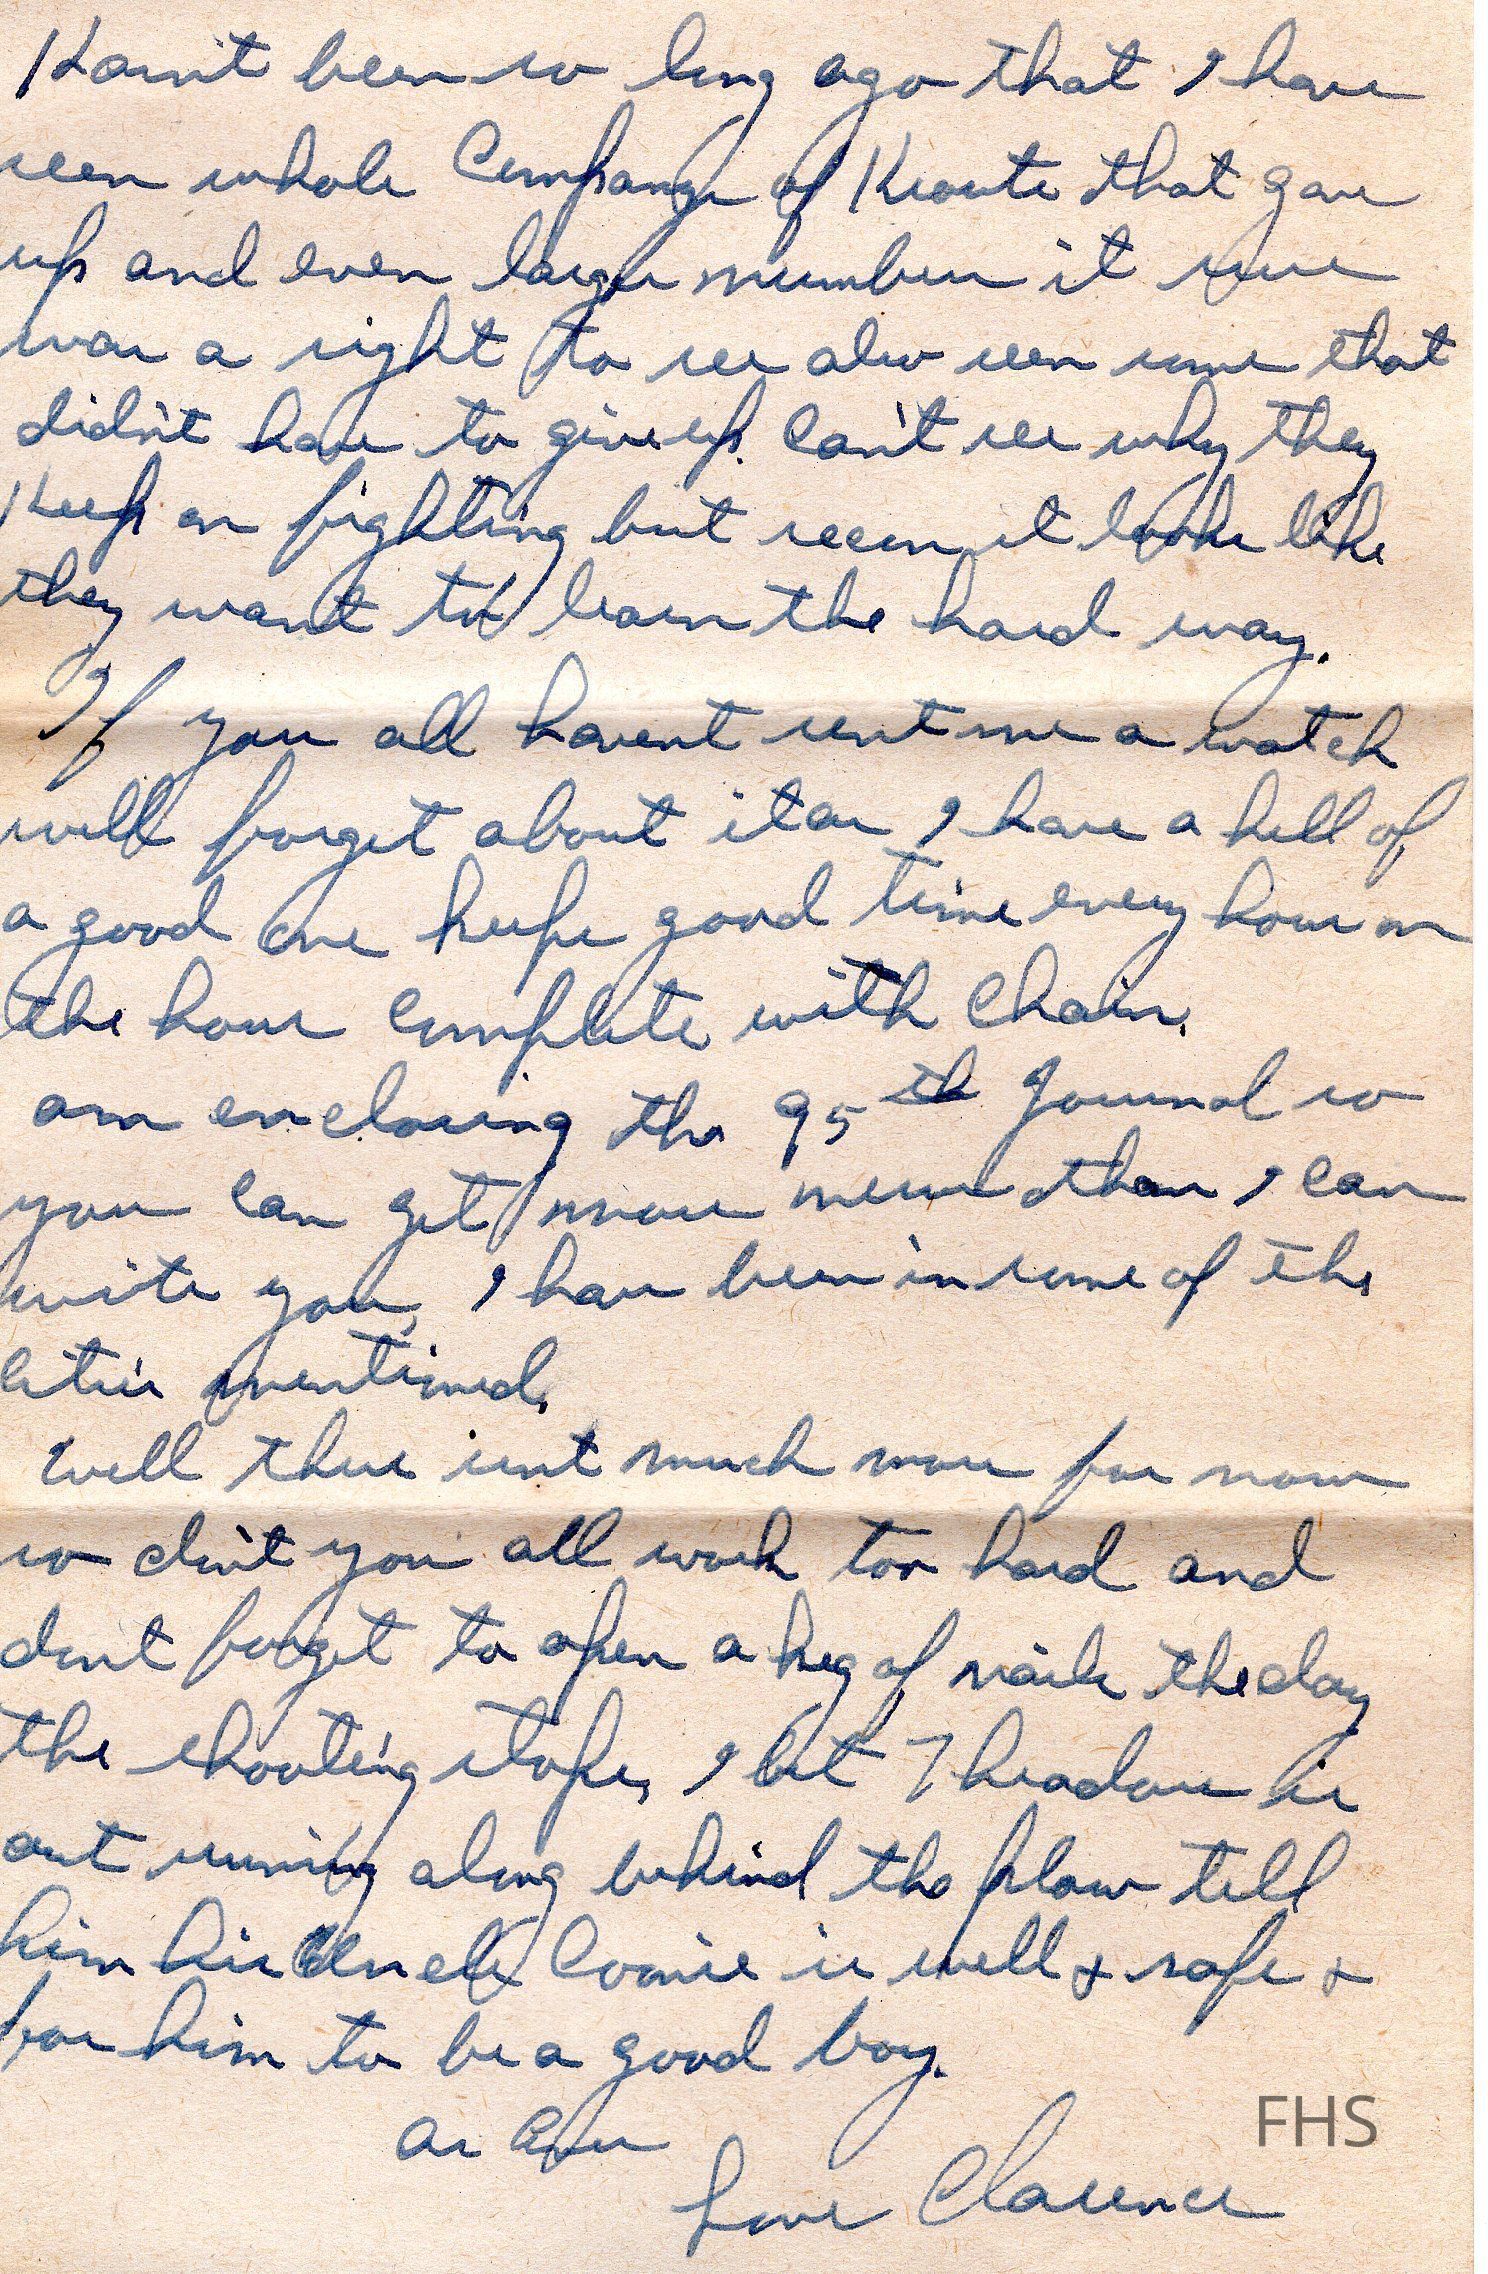 Hasn't been so long ago that I have
seen whole Companys of Krauts that gave
up and even larger number it sure
was a sight to see also seen some that
didn't have to give up. Can't see why they
Keep on fighting but seem it looks like
they want to learn the hard way.
If you all havent sent me a watch
well forget about it as I have a hell of
a good one keeps good time every hour on
the hour Complete with Chain.
am enclosing the 95th Journal so
you can get more news than I can
write you, I have been in some of the
Cities mentioned.
Well there isnt much more for now
so don't you all work too hard and
dont forget to open a keg of nails the day
the shooting stops, I bet Theadore is
out running along behind the plow tell
him his Uncle is well & safe &
for him to be a good boy.
As Ever
Love Clarence
FHS